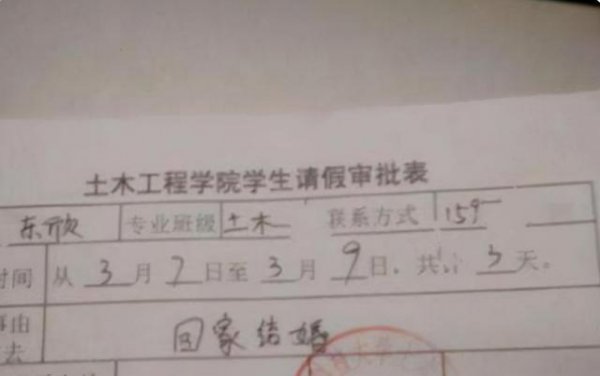 土木工程学院学生请假审批表
东欣 专业班级 土木 联系方式 159
时间 从 3 月 7 日至 3 月 9 日。共计 3 天。
事由
去 回家结婚